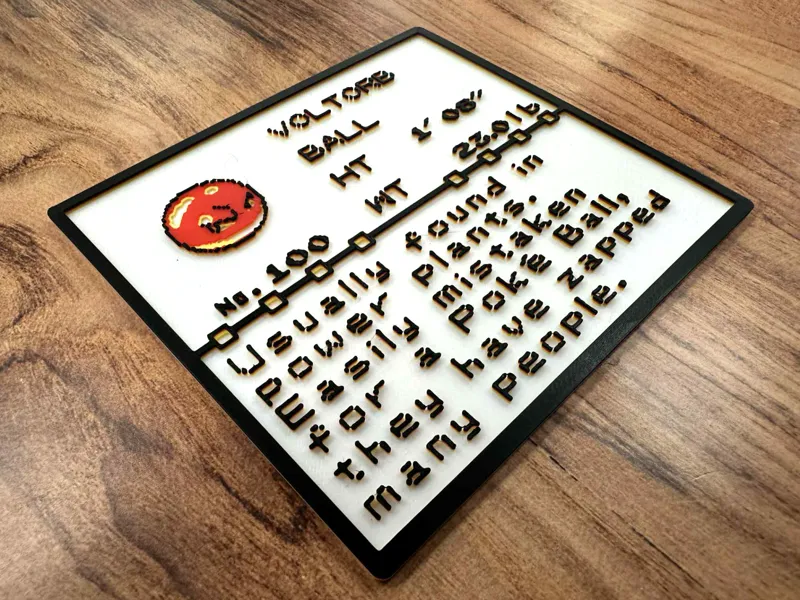 VOLTORB
BALL
HT 1' 08"
WT 23.0lb
No.100
Usually found in
power plants.
Easily mistaken
for a Poké Ball,
they have zapped
many people.